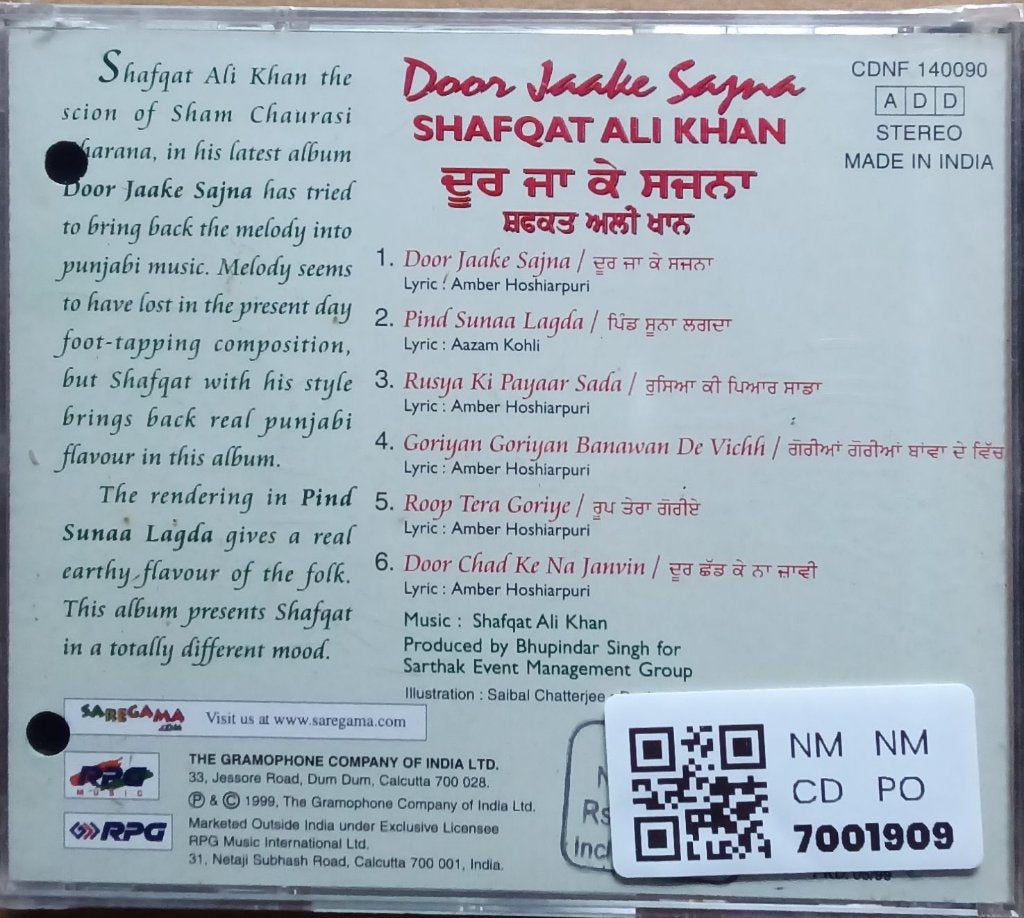 Shafqat Ali Khan the
scion of Sham Chaurasi
harana, in his latest album
Door Jaake Sajna has tried
to bring back the melody into
punjabi music. Melody seems
to have lost in the present day
foot-tapping composition,
but Shafqat with his style
brings back real punjabi
flavour in this album.
The rendering in Pind
Sunaa Lagda gives a real
earthy flavour of the folk.
This album presents Shafqat
in a totally different mood.
Door Jaake Sajna
SHAFQAT ALI KHAN
ਦੂਰ ਜਾ ਕੇ ਸਜਨਾ
ਸ਼ਫਕਤ ਅਲੀ ਖਾਨ
CDNF 140090
A D D
STEREO
MADE IN INDIA
1. Door Jaake Sajna / ਦੂਰ ਜਾ ਕੇ ਸਜਨਾ
Lyric : Amber Hoshiarpuri
2. Pind Sunaa Lagda / ਪਿੰਡ ਸੂਨਾ ਲਗਦਾ
Lyric : Aazam Kohli
3. Rusya Ki Payaar Sada / ਰੁਸਿਆ ਕੀ ਪਿਆਰ ਸਾਡਾ
Lyric : Amber Hoshiarpuri
4. Goriyan Goriyan Banawan De Vichh / ਗੋਰੀਆਂ ਗੋਰੀਆਂ ਬਾਂਵਾ ਦੇ ਵਿੱਚ
Lyric : Amber Hoshiarpuri
5. Roop Tera Goriye / ਰੂਪ ਤੇਰਾ ਗੋਰੀਏ
Lyric : Amber Hoshiarpuri
6. Door Chad Ke Na Janvin / ਦੂਰ ਛੱਡ ਕੇ ਨਾ ਜਾਵੀ
Lyric : Amber Hoshiarpuri
Music : Shafqat Ali Khan
Produced by Bhupindar Singh for
Sarthak Event Management Group
Illustration : Saibal Chatterjee
SAREGAMA .com Visit us at www.saregama.com
RPG MUSIC
THE GRAMOPHONE COMPANY OF INDIA LTD.
33, Jessore Road, Dum Dum, Calcutta 700 028.
Ⓟ & © 1999, The Gramophone Company of India Ltd.
RPG
Marketed Outside India under Exclusive Licensee
RPG Music International Ltd.
31, Netaji Subhash Road, Calcutta 700 001, India.
Rs
Incl
NM NM
CD PO
7001909